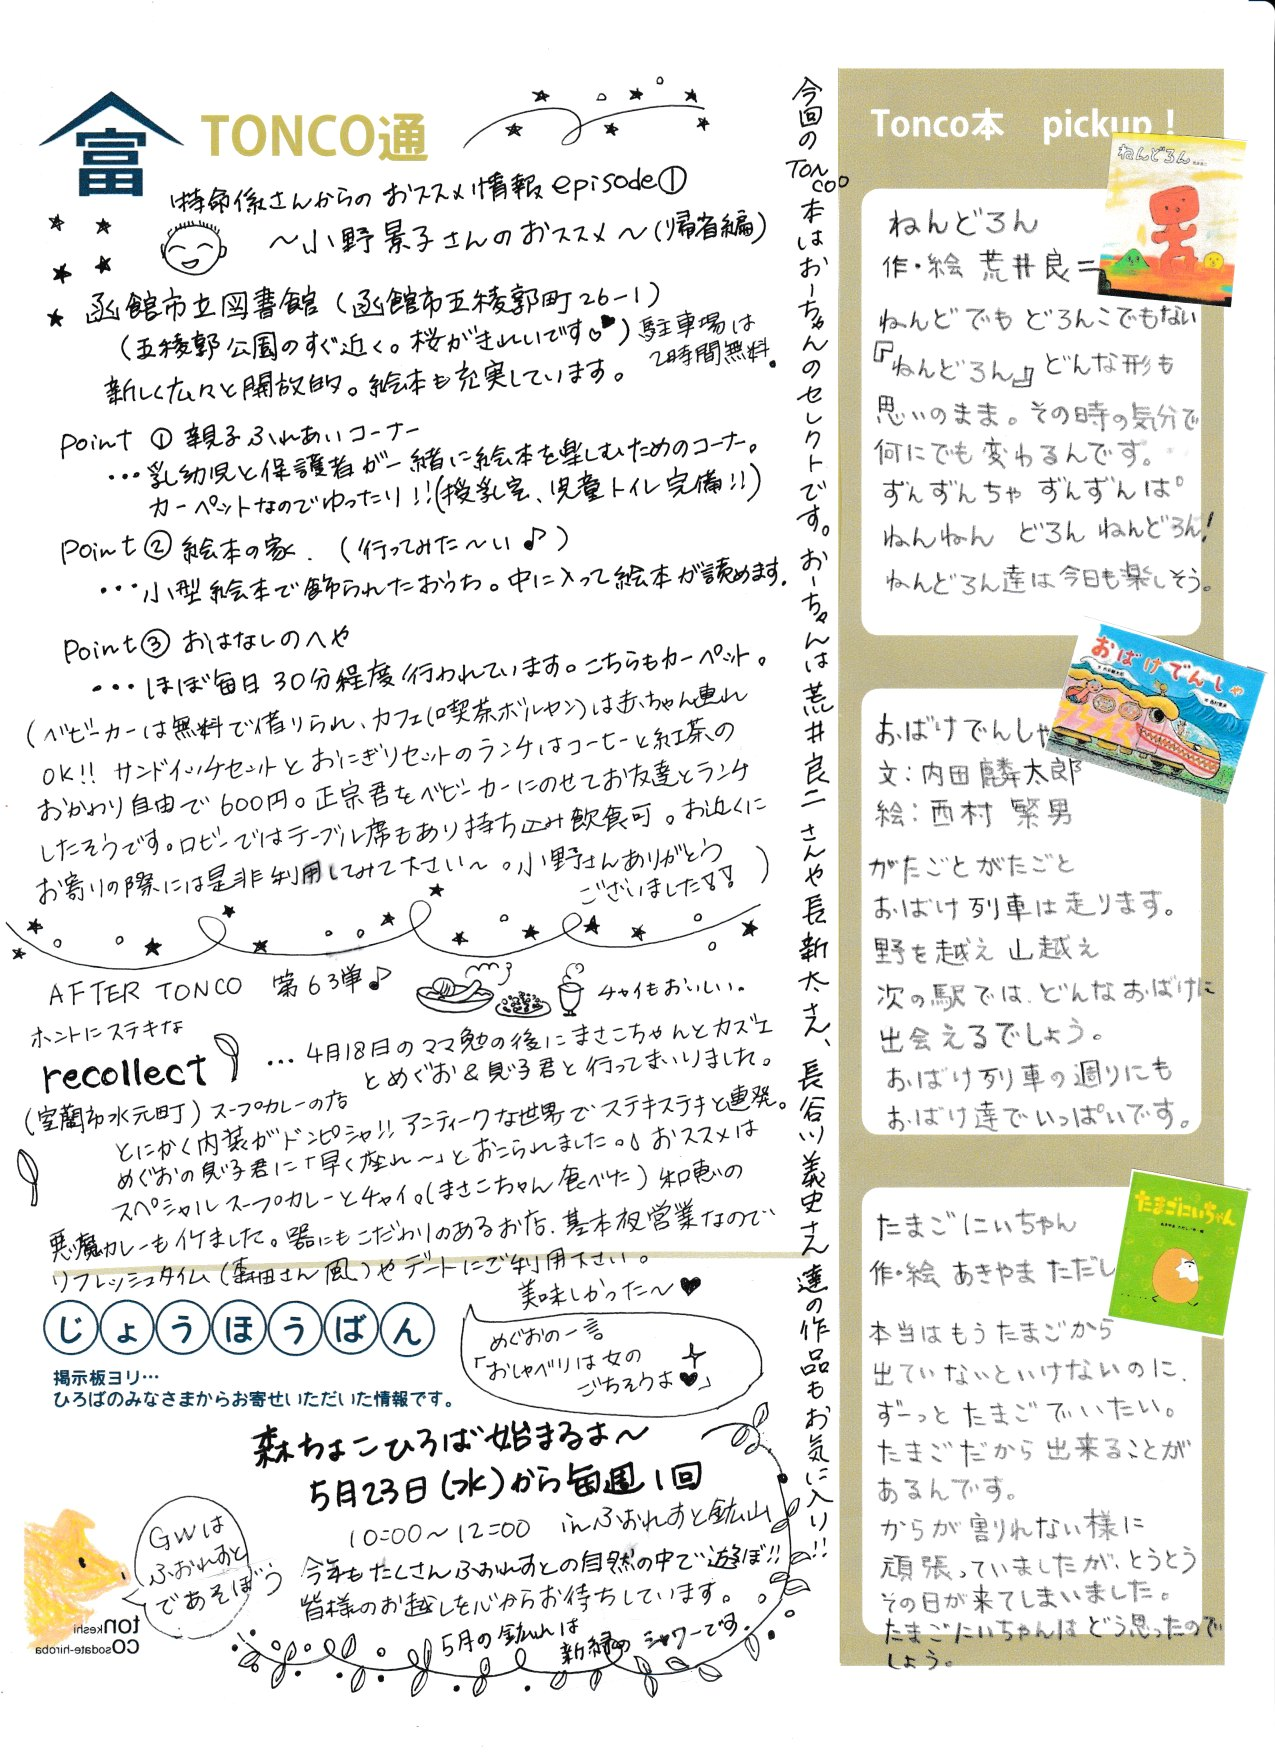 富 TONCO通
特命係さんからの おススメ情報 episode①
～小野景子さんのおススメ～(帰省編)
函館市立図書館(函館市五稜郭町26-1)
(五稜郭公園のすぐ近く。桜がきれいです♥)駐車場は
2時間無料。
新しく広々と開放的。絵本も充実しています。
Point ① 親子ふれあいコーナー
…乳幼児と保護者が一緒に絵本を楽しむためのコーナー。
カーペットなのでゆったり!!(授乳室、児童トイレ完備!!)
Point② 絵本の家.(行ってみた～い♪)
…小型絵本で飾られたおうち。中に入って絵本が読めます.
Point③ おはなしのへや
…ほぼ毎日30分程度行われています。こちらもカーペット。
(ベビーカーは無料で借りられ、カフェ(喫茶ボルヤン)は赤ちゃん連れ
OK!! サンドイッチセットとおにぎりセットのランチはコーヒーと紅茶の
おかわり自由で600円。正宗君をベビーカーにのせてお友達とランチ
したそうです。ロビーではテーブル席もあり持ち込み飲食可。お近くに
お寄りの際には是非利用してみて下さい～。小野さんありがとう
ございました!!)
AFTER TONCO 第63弾♪
チャイもおいしい。
ホントにステキな
recollect …4月18日のママ勉の後にまさこちゃんとカズエ
とめぐお&息子君と行ってまいりました。
(室蘭市水元町)スープカレーの店
とにかく内装がドンピシャ!!アンティークな世界でステキステキと連発。
めぐおの息子君に「早く座れ～」とおこられました。おススメは
スペシャルスープカレーとチャイ。(まさこちゃん食べた)和恵の
悪魔カレーもイケました。器にもこだわりのあるお店.基本夜営業なので
リフレッシュタイム(森田さん風)やデートにご利用下さい。
美味しかった～♥
じょうほうばん
掲示板ヨリ…
ひろばのみなさまからお寄せいただいた情報です。
めぐおの一言
「おしゃべりは女の
ごちそうよ♥」
森ちょこひろば始まるよ～
5月23日(水)から毎週1回
10:00～12:00 inふぉれすと鉱山
今年もたくさんふぉれすとの自然の中で遊ぼ!!
皆様のお越しを心からお待ちしています。
5月の鉱山は
新緑のシャワーです
GWは
ふぉれすと
であそぼう
tonkeshi
cosodate-hiroba
今回のTONCO本はおーちゃんのセレクトです。おーちゃんは荒井良二さんや長新太さん、長谷川義史さん達の作品もお気に入り!!
Tonco本 pickup！
ねんどろん
ねんどろん
作・絵 荒井良二
ねんどでもどろんこでもない
『ねんどろん』どんな形も
思いのまま。その時の気分で
何にでも変わるんです。
ずんずんちゃ ずんずんぱ
ねんねん どろん ねんどろん!
ねんどろん達は今日も楽しそう。
おばけでんしゃ
おばけでんしゃ
文:内田麟太郎
絵:西村繁男
がたごとがたごと
おばけ列車は走ります。
野を越え山越え
次の駅では、どんなおばけに
出会えるでしょう。
おばけ列車の週りにも
おばけ達でいっぱいです。
たまごにいちゃん
たまごにいちゃん
作・絵 あきやまただし
本当はもうたまごから
出ていないといけないのに、
ずーっとたまごでいたい。
たまごだから出来ることが
あるんです。
からが割れない様に
頑張っていましたが、とうとう
その日が来てしまいました。
たまごにいちゃんはどう思ったので
しょう。